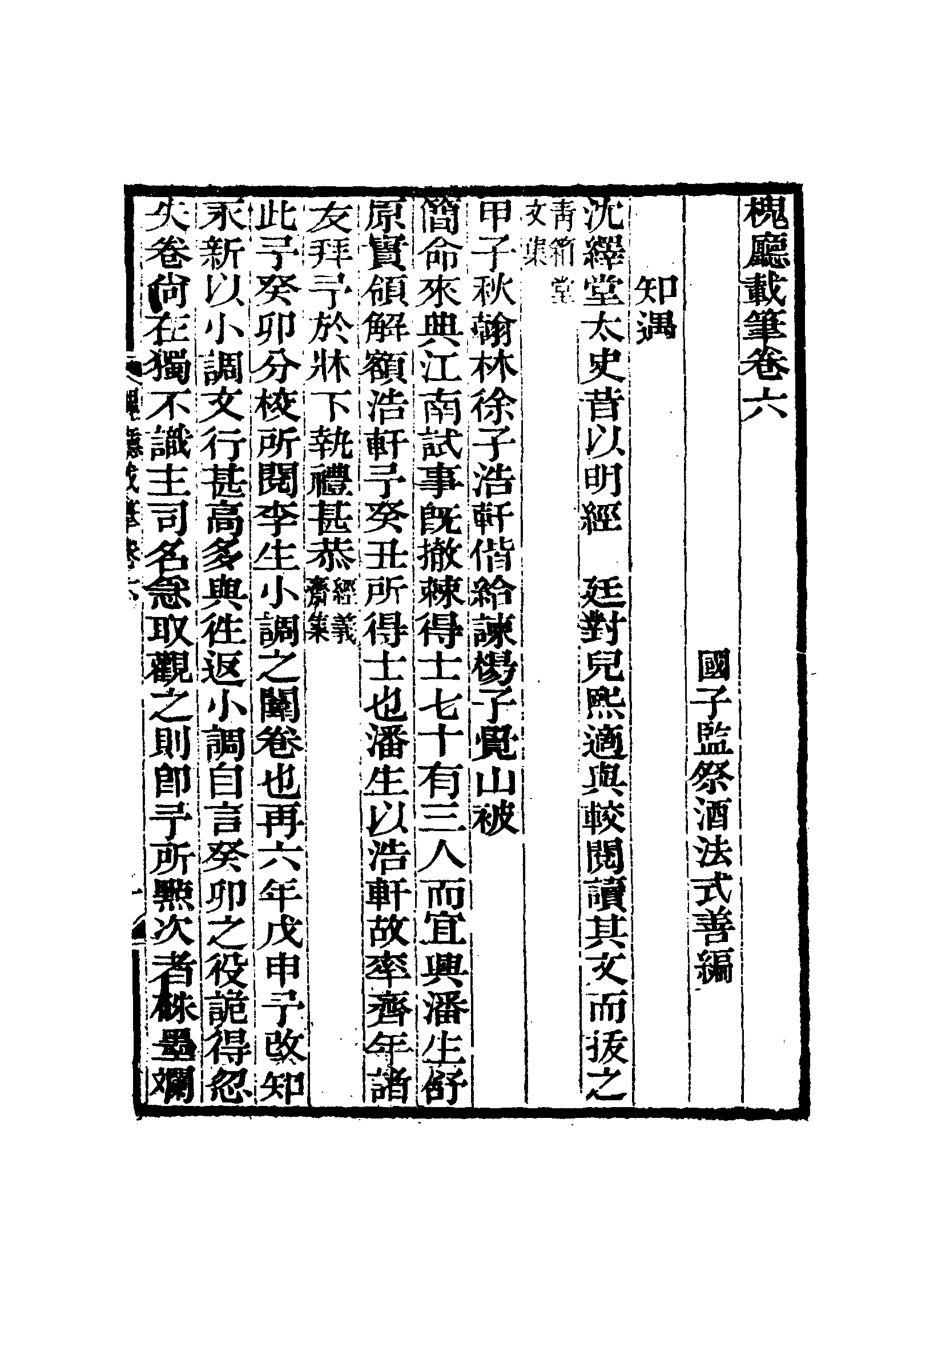 槐廳載筆卷六
國子監祭酒法式善編
知遇
沈繹堂太史昔以明經　廷對兒熙適與較閱讀其文而拔之
青箱堂
文集
甲子秋翰林徐子浩軒偕給諫楊子覺山被
簡命來典江南試事旣撤棘得士七十有三人而宜興潘生舒
原實領解額浩軒予癸丑所得士也潘生以浩軒故率齊年諸
友拜予於牀下執禮甚恭經義
齋集
此予癸卯分校所閱李生小調之闈卷也再六年戊申予改知
永新以小調文行甚高多與徃返小調自言癸卯之役詭得忽
失卷尙在獨不識主司名急取觀之則卽予所㸃次者硃墨斕
槐廳載筆卷六